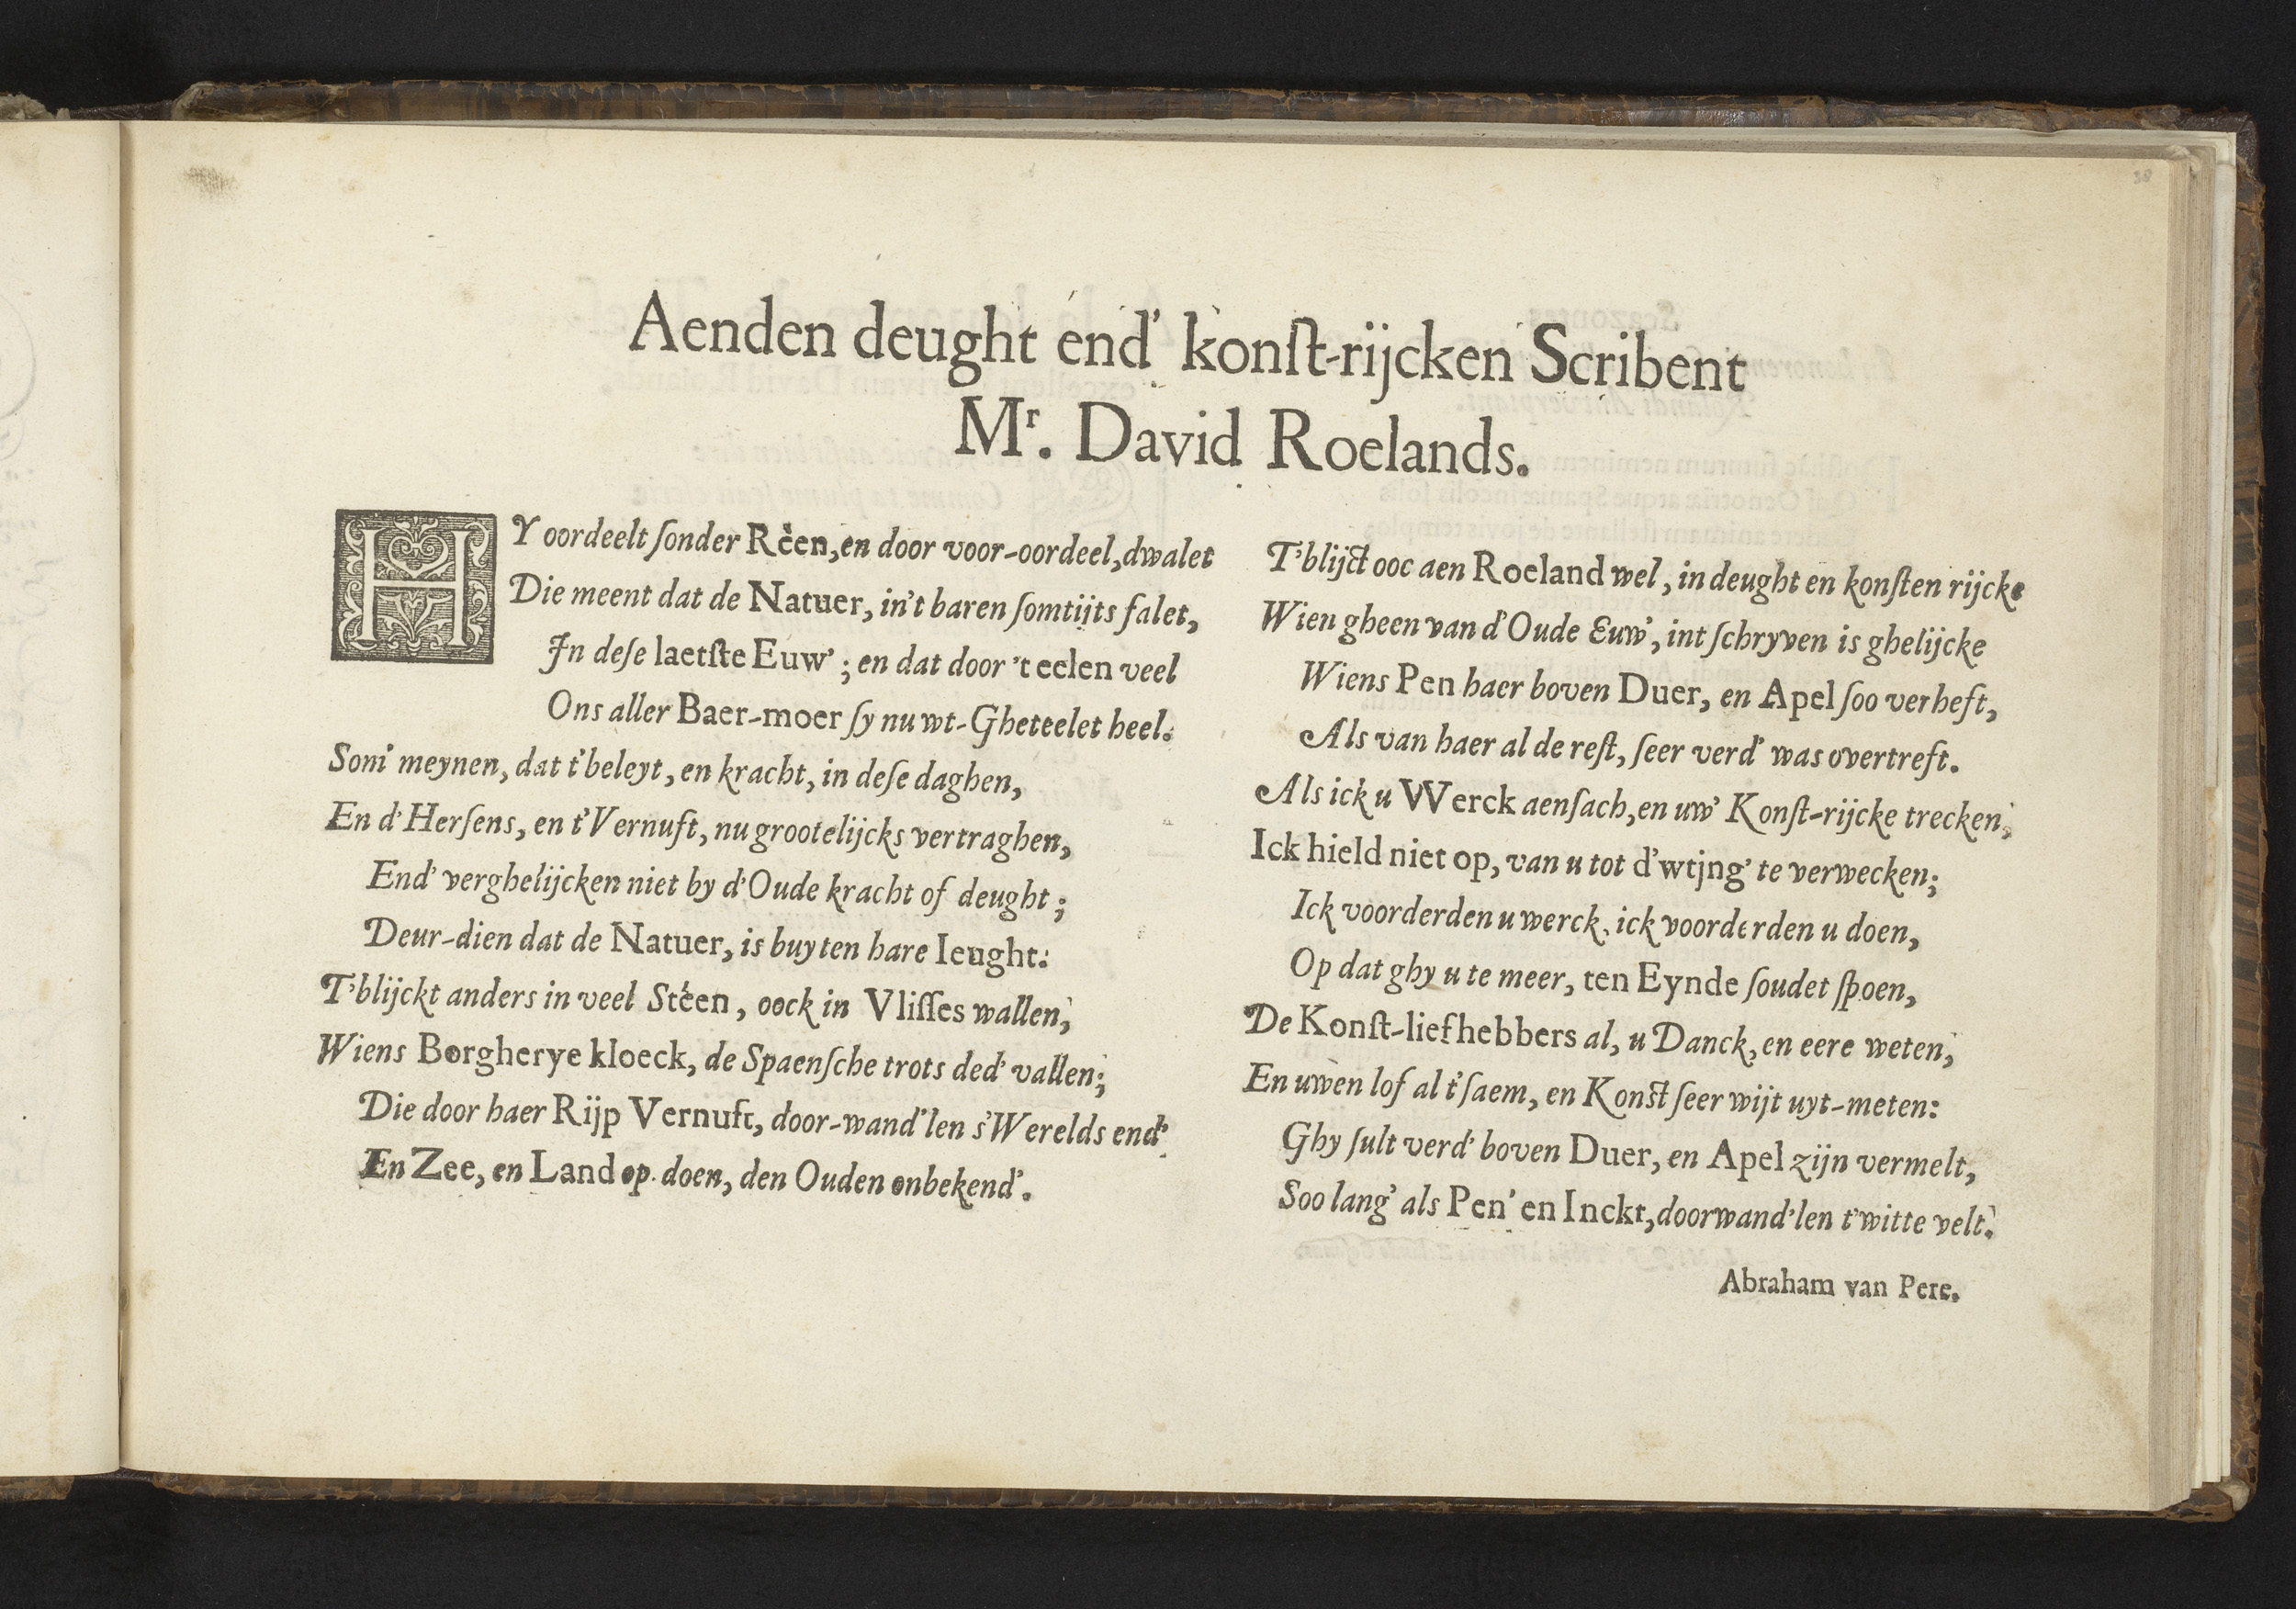 Aenden deught end' konſt-rijcken Scribent
Mr. David Roelands.
HY oordeelt ſonder Rèen, en door voor-oordeel, dwalet
Die meent dat de Natuer, in't baren ſomtijts falet,
In deſe laetſte Euw'; en dat door 't eelen veel
Ons aller Baer-moer ſy nu wt-Gheteelet heel.
Som' meynen, dat t'beleyt, en kracht, in deſe daghen,
En d'Herſens, en t'Vernuft, nu grootelijcks vertraghen,
End' verghelijcken niet by d'Oude kracht of deught;
Deur-dien dat de Natuer, is buyten hare Ieught:
T'blijckt anders in veel Stéen, oock in Vliſſes wallen,
Wiens Borgherye kloeck, de Spaenſche trots ded' vallen;
Die door haer Rijp Vernuft, door-wand'len s'Werelds end'
En Zee, en Land op doen, den Ouden onbekend'.
T'blijct ooc aen Roeland wel, in deught en konſten rijcke
Wien gheen van d'Oude Euw', int ſchryven is ghelijcke
Wiens Pen haer boven Duer, en Apel ſoo verheft,
Als van haer al de reſt, ſeer verd' was overtreft.
Als ick u Werck aenſach, en uw' Konſt-rijcke trecken,
Ick hield niet op, van u tot d'wtjng' te verwecken;
Ick voorderden u werck, ick voorderden u doen,
Op dat ghy u te meer, ten Eynde ſoudet ſpoen,
De Konſt-liefhebbers al, u Danck, en eere weten,
En uwen lof al t'ſaem, en Konſt ſeer wijt uyt-meten:
Ghy ſult verd' boven Duer, en Apel zijn vermelt,
Soo lang' als Pen' en Inckt, doorwand'len t'witte velt.
Abraham van Pere.
38